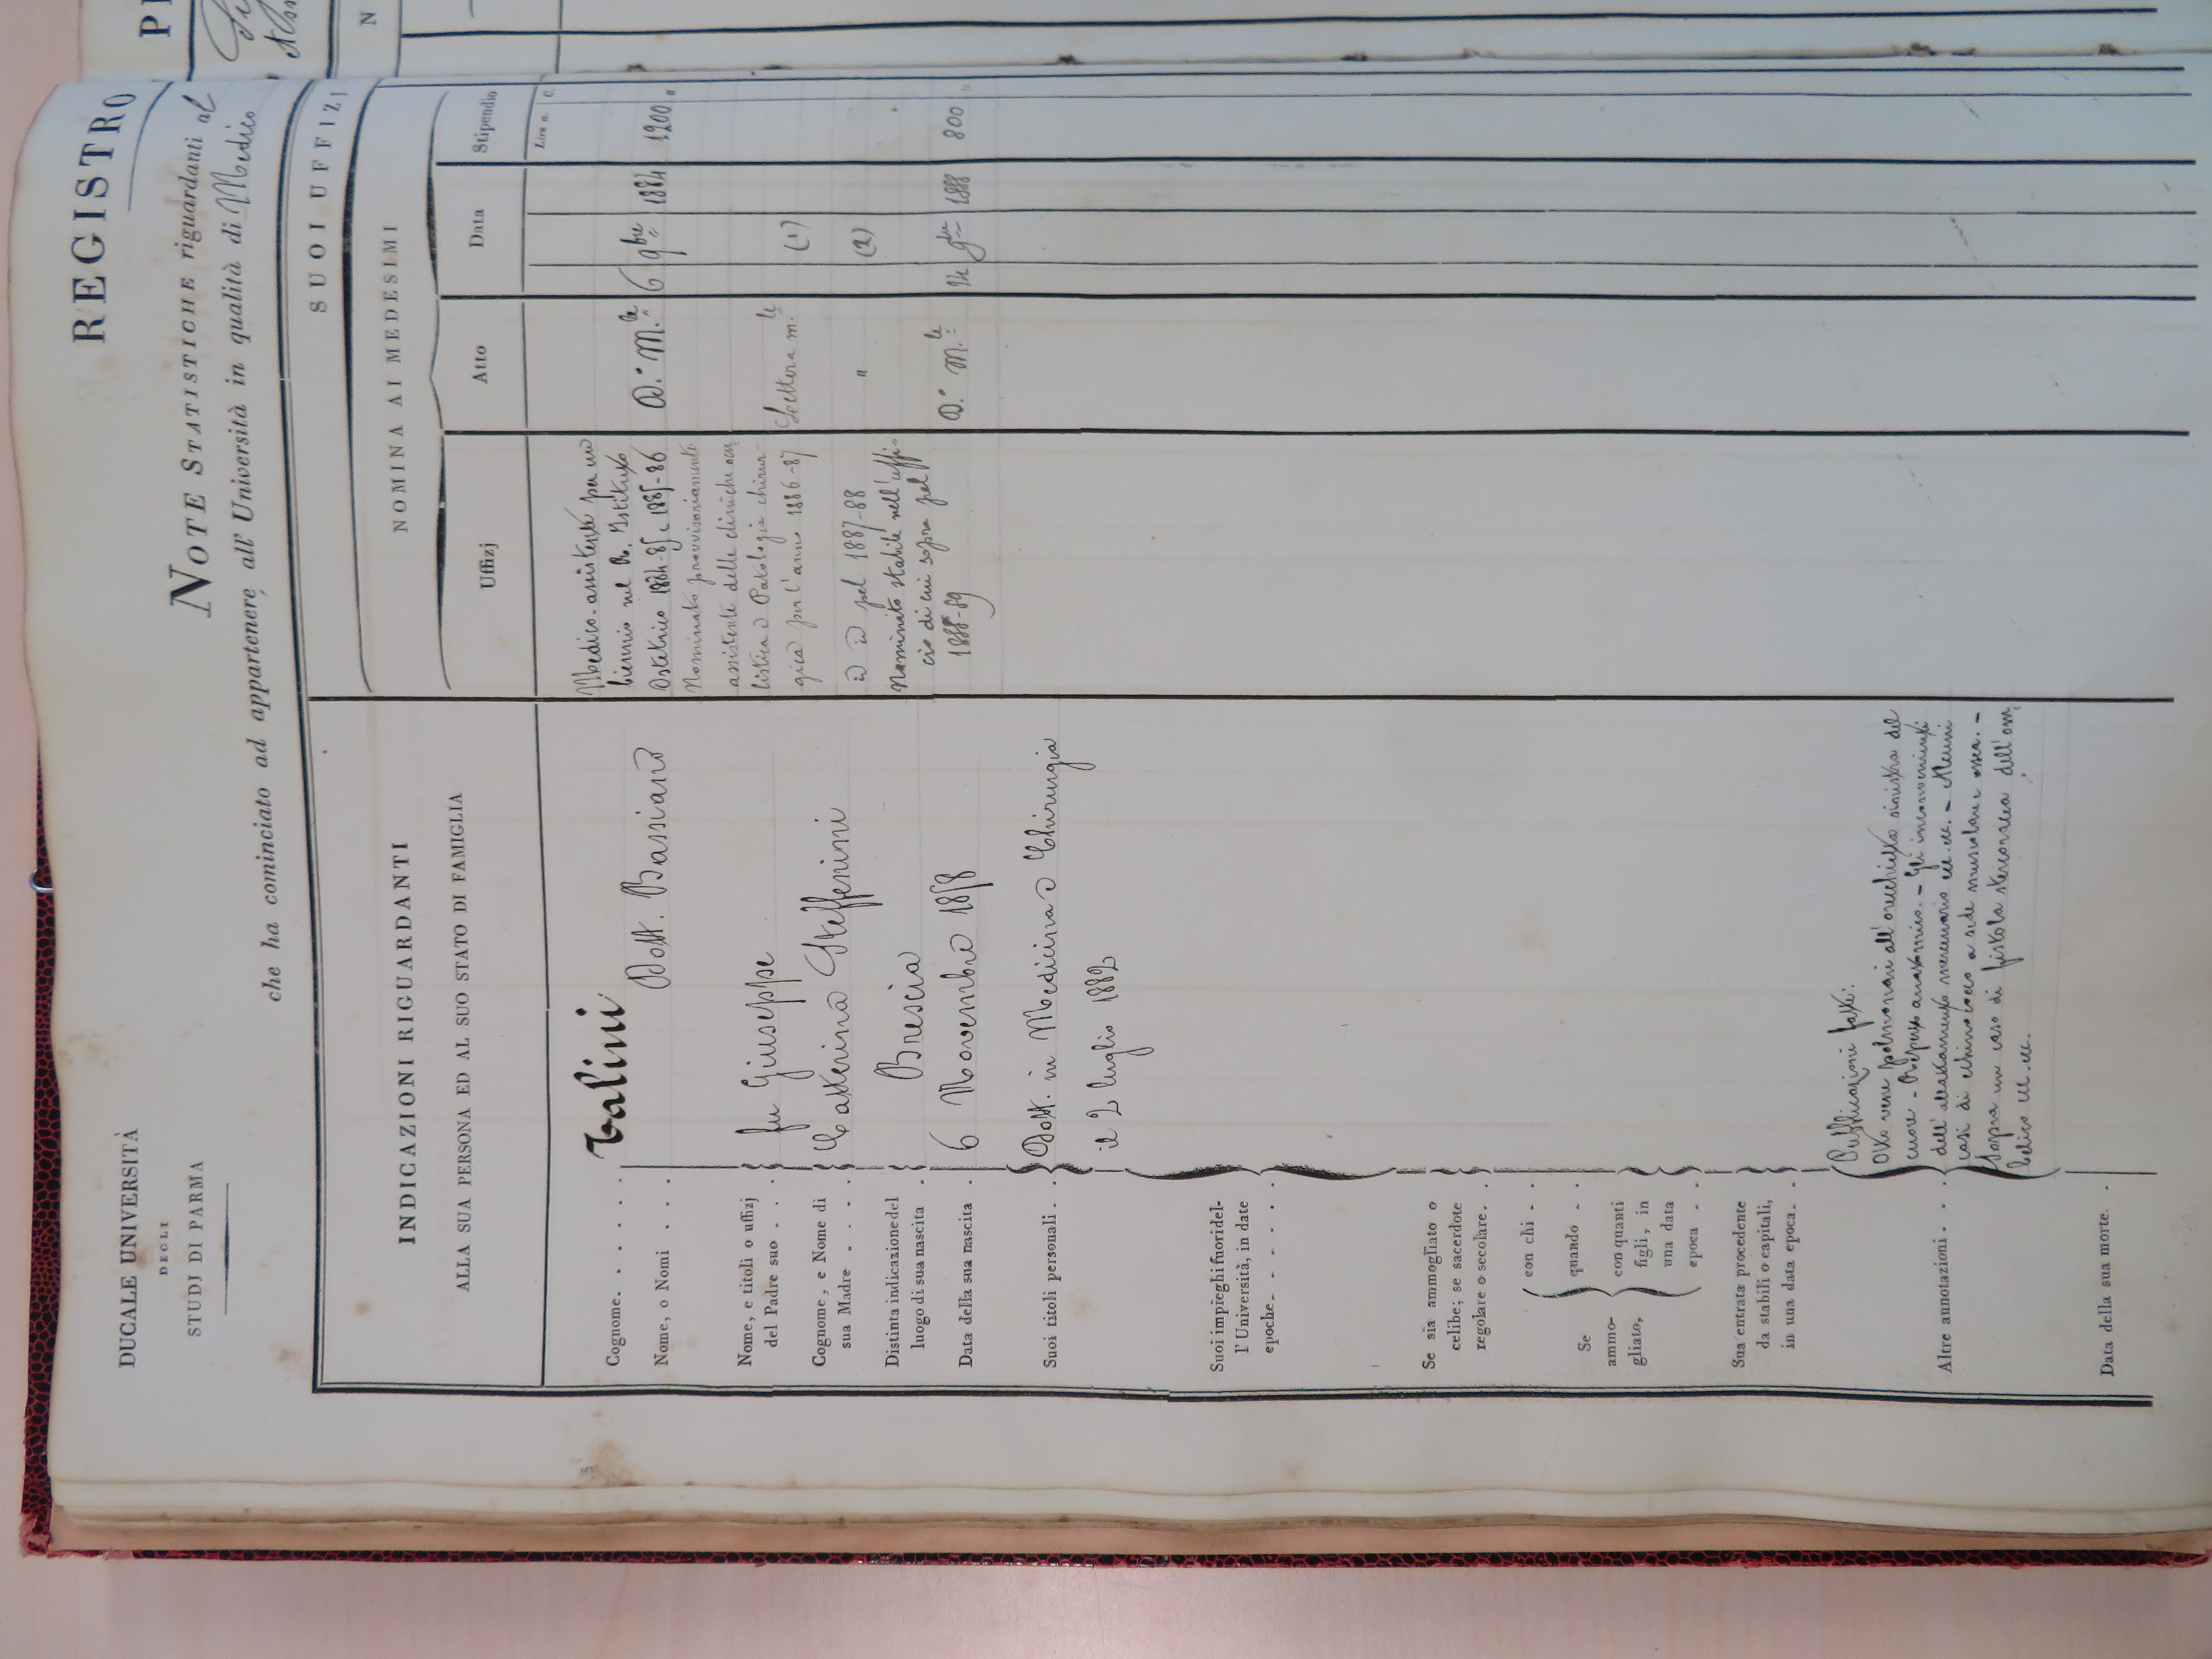 REGISTRO
DUCALE UNIVERSITÀ
DEGLI
STUDJ DI PARMA
NOTE STATISTICHE riguardanti al
che ha cominciato ad appartenere all' Università in qualità di Medico
INDICAZIONI RIGUARDANTI
ALLA SUA PERSONA ED AL SUO STATO DI FAMIGLIA
Cognome. . . . . . Talini
Nome, o Nomi . . . Dott. Bassiano
Nome, e titoli o uffizj
del Padre suo . . . fu Giuseppe
Cognome, e Nome di
sua Madre . . . . Catterina Steffenini
Distinta indicazione del
luogo di sua nascita . Brescia
Data della sua nascita . 6 Novembre 1858
Suoi titoli personali . . Dott. in Medicina e Chirurgia
il 2 luglio 1882
Suoi impieghi fuori del-
l' Università, in date
epoche. . . . . .
Se sia ammogliato o
celibe; se sacerdote
regolare o secolare. .
Se
ammo-
gliato,
con chi . .
quando . .
con quanti
figli, in
una data
epoca . .
Sua entrata procedente
da stabili o capitali,
in una data epoca. .
Altre annotazioni . . .
Pubblicazioni fatte:
Otto vene polmonari all'orecchietta sinistra del
cuore - Reperto anatomico. - Gli inconvenienti
dell'allattamento mercenario ecc. ecc. - Alcuni
casi di echinococco a sede muscolare e ossea. -
Sopra un caso di fistola stercoracea dell'om
belico ecc. ecc.
Data della sua morte. .
SUOI UFFIZJ
NOMINA AI MEDESIMI
Uffizj
Atto
Data
Stipendio
Lire n. C.
Medico-assistente per un
biennio nel R. Istituto
Ostetrico 1884-85 e 1885-86 D.° M.le 6 9bre 1884 1200 "
Nominato provvisoriamente
assistente delle cliniche ocu
listica e Patologia chirur-
gica per l'anno 1886-87 Lettera m.le (1)
id id pel 1887-88 " (2)
Nominato stabile nell'uffi-
cio di cui sopra pel
1888-89 D.° M.le 14 9bre 1888 800 "
P
N